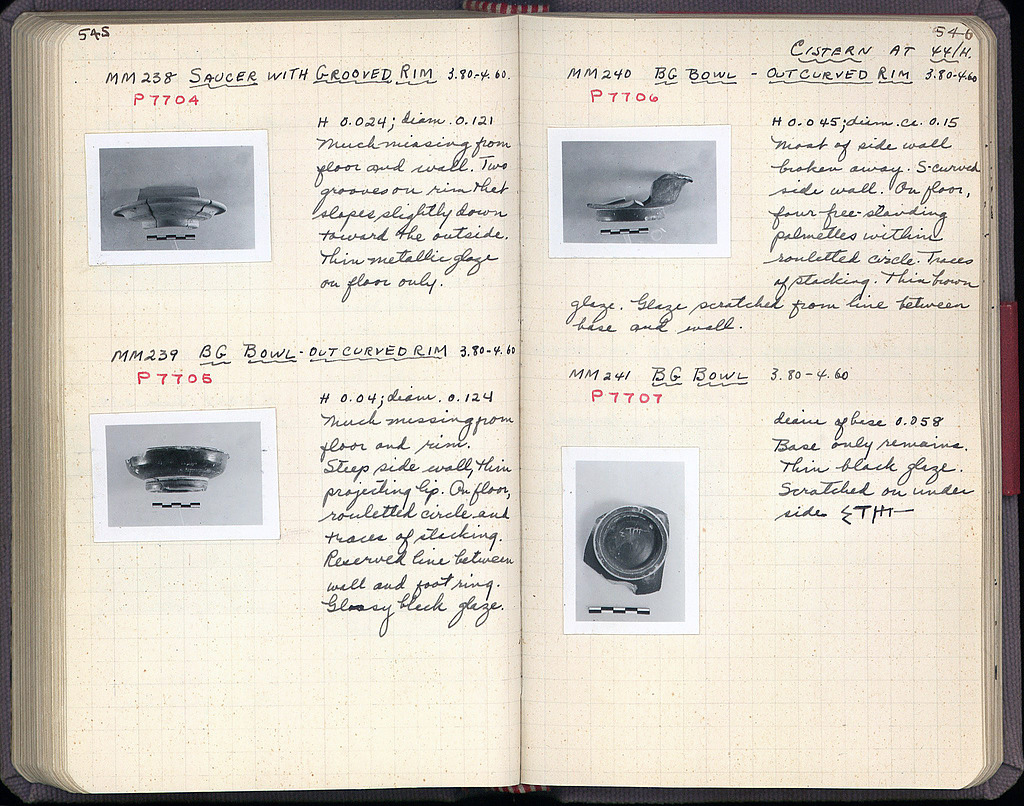 545
MM238 SAUCER WITH GROOVED RIM 3.80-4.60.
P7704
H 0.024; diam. 0.121
Much missing from
floor and wall. Two
grooves on rim that
slopes slightly down
toward the outside.
Thin metallic glaze
on floor only.
MM239 BG BOWL-OUTCURVED RIM 3.80-4.60
P7705
H 0.04; diam. 0.124
Much missing from
floor and rim.
Steep side wall, thin
projecting lip. On floor,
rouletted circle and
traces of stacking.
Reserved line between
wall and foot ring.
Glossy black glaze.
546
CISTERN AT 44/H.
MM240 BG BOWL - OUTCURVED RIM 3.80-4.60
P7706
H 0.045; diam. ca. 0.15
Most of side wall
broken away. S-curved
side wall. On floor,
four free-standing
palmettes within
rouletted circle. Traces
of stacking. Thin brown
glaze. Glaze scratched from line between
base and wall.
MM241 BG BOWL 3.80-4.60
P7707
diam of base 0.058
Base only remains.
Thin black glaze.
Scratched on under
side